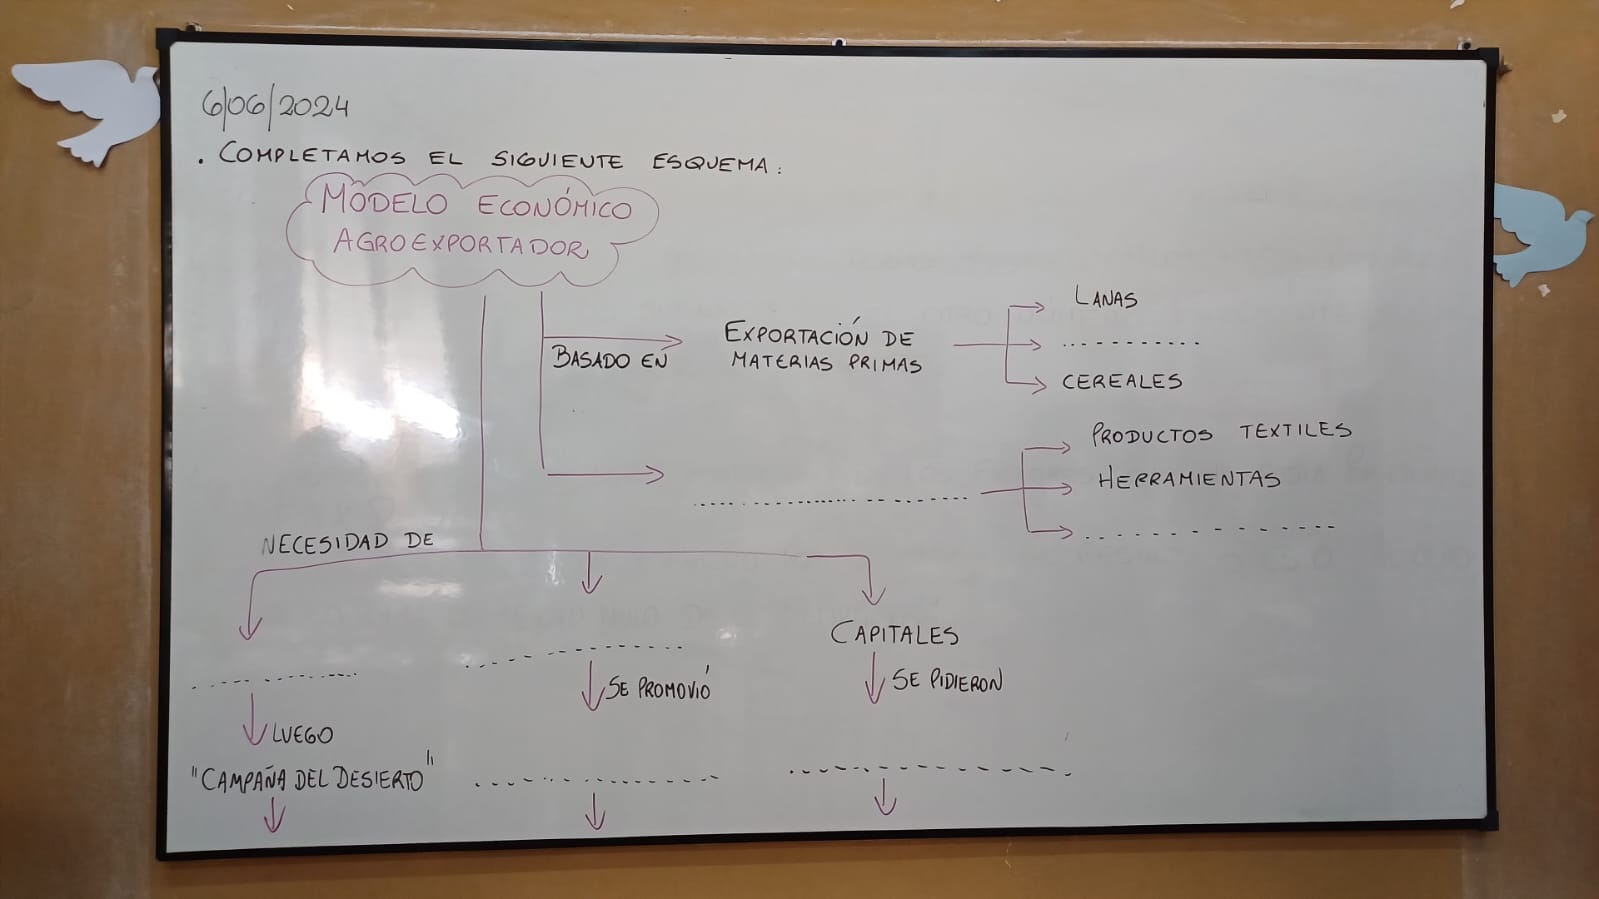 6/06/2024
. COMPLETAMOS EL SIGUIENTE ESQUEMA:
MODELO ECONÓMICO
AGROEXPORTADOR
BASADO EN
EXPORTACIÓN DE
MATERIAS PRIMAS
LANAS
...........
CEREALES
....................
PRODUCTOS TEXTILES
HERRAMIENTAS
..............
NECESIDAD DE
..............
LUEGO
"CAMPAÑA DEL DESIERTO"
..............
SE PROMOVIÓ
..............
CAPITALES
SE PIDIERON
..............